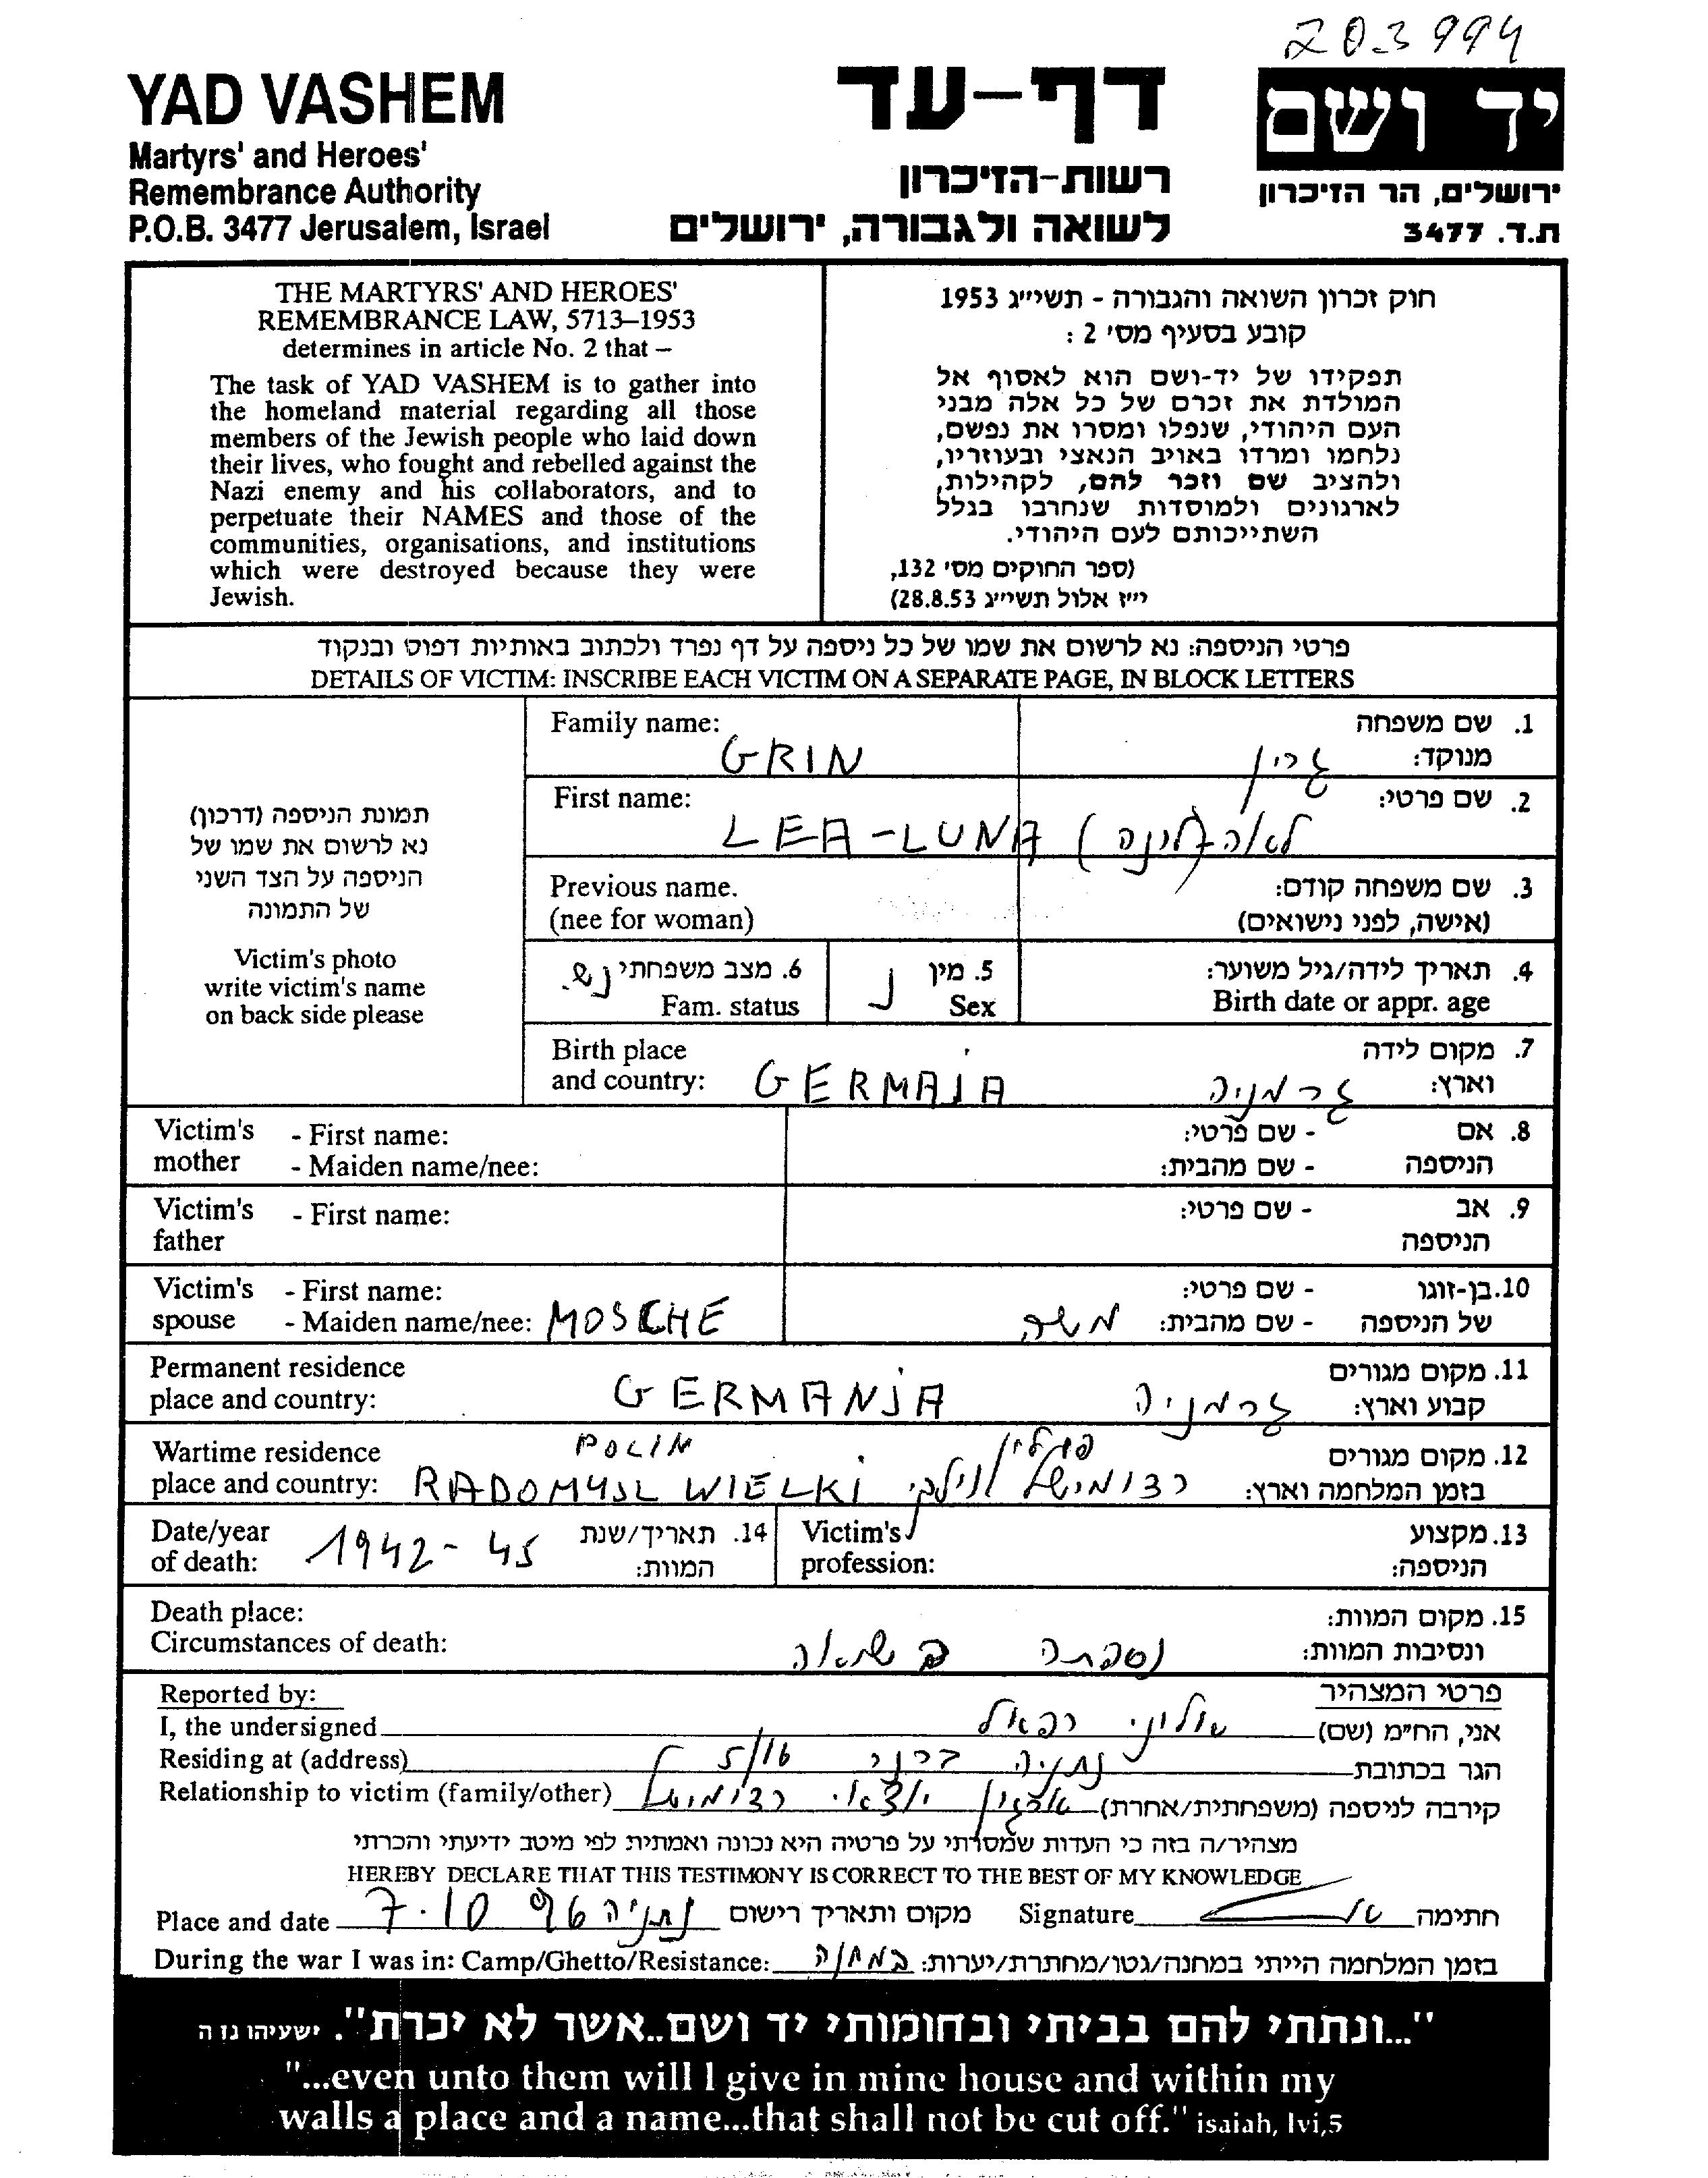 203994
YAD VASHEM
Martyrs' and Heroes'
Remembrance Authority
P.O.B. 3477 Jerusalem, Israel
דף-עד
רשות-הזיכרון
לשואה ולגבורה, ירושלים
יד ושם
ירושלים, הר הזיכרון
ת.ד. 3477
THE MARTYRS' AND HEROES'
REMEMBRANCE LAW, 5713–1953
determines in article No. 2 that –
The task of YAD VASHEM is to gather into
the homeland material regarding all those
members of the Jewish people who laid down
their lives, who fought and rebelled against the
Nazi enemy and his collaborators, and to
perpetuate their NAMES and those of the
communities, organisations, and institutions
which were destroyed because they were
Jewish.
חוק זכרון השואה והגבורה - תשי״ג 1953
קובע בסעיף מס׳ 2 :
תפקידו של יד-ושם הוא לאסוף אל
המולדת את זכרם של כל אלה מבני
העם היהודי, שנפלו ומסרו את נפשם,
נלחמו ומרדו באויב הנאצי ובעוזריו,
ולהציב שם וזכר להם, לקהילות,
לארגונים ולמוסדות שנחרבו בגלל
השתייכותם לעם היהודי.
(ספר החוקים מס׳ 132,
י״ז אלול תשי״ג 28.8.53)
פרטי הניספה: נא לרשום את שמו של כל ניספה על דף נפרד ולכתוב באותיות דפוס ובנקוד
DETAILS OF VICTIM: INSCRIBE EACH VICTIM ON A SEPARATE PAGE, IN BLOCK LETTERS
תמונת הניספה (דרכון)
נא לרשום את שמו של
הניספה על הצד השני
של התמונה
Victim's photo
write victim's name
on back side please
Family name: 1. שם משפחה
GRIN גרין מנוקד:
First name: 2. שם פרטי:
LEA-LUNA (לאה-לינה)
Previous name. 3. שם משפחה קודם:
(nee for woman) (אישה, לפני נישואים)
6. מצב משפחתי נש. 5. מין נ 4. תאריך לידה/גיל משוער:
Fam. status Sex Birth date or appr. age
Birth place 7. מקום לידה
and country: GERMAJA גרמניה וארץ:
Victim's - First name: - שם פרטי: 8. אם
mother - Maiden name/nee: - שם מהבית: הניספה
Victim's - First name: - שם פרטי: 9. אב
father הניספה
Victim's - First name: - שם פרטי: 10. בן-זוגו
spouse - Maiden name/nee: MOSCHE משה - שם מהבית: של הניספה
Permanent residence 11. מקום מגורים
place and country: GERMANJA גרמניה קבוע וארץ:
Wartime residence POLIN פולין 12. מקום מגורים
place and country: RADOMYSL WIELKI רדומישל ווילקי בזמן המלחמה וארץ:
Date/year 14. תאריך/שנת Victim's 13. מקצוע
of death: 1942-45 המוות: profession: הניספה:
Death place: 15. מקום המוות:
Circumstances of death: נספתה בשואה ונסיבות המוות:
Reported by: פרטי המצהיר
I, the undersigned רפאל אני, הח״מ (שם)
Residing at (address) נתניה 5/16 הגר בכתובת
Relationship to victim (family/other) ארגון יוצאי רדומישל קירבה לניספה (משפחתית/אחרת)
מצהיר/ה בזה כי העדות שמסרתי על פרטיה היא נכונה ואמתית לפי מיטב ידיעתי והכרתי
HEREBY DECLARE THAT THIS TESTIMONY IS CORRECT TO THE BEST OF MY KNOWLEDGE
Place and date 7.10 96 נתניה מקום ותאריך רישום Signature חתימה
During the war I was in: Camp/Ghetto/Resistance: במחנה בזמן המלחמה הייתי במחנה/גטו/מחתרת/יערות:
"...ונתתי להם בביתי ובחומותי יד ושם..אשר לא יכרת". ישעיהו נו ה
"...even unto them will I give in mine house and within my
walls a place and a name...that shall not be cut off." isaiah, lvi,5